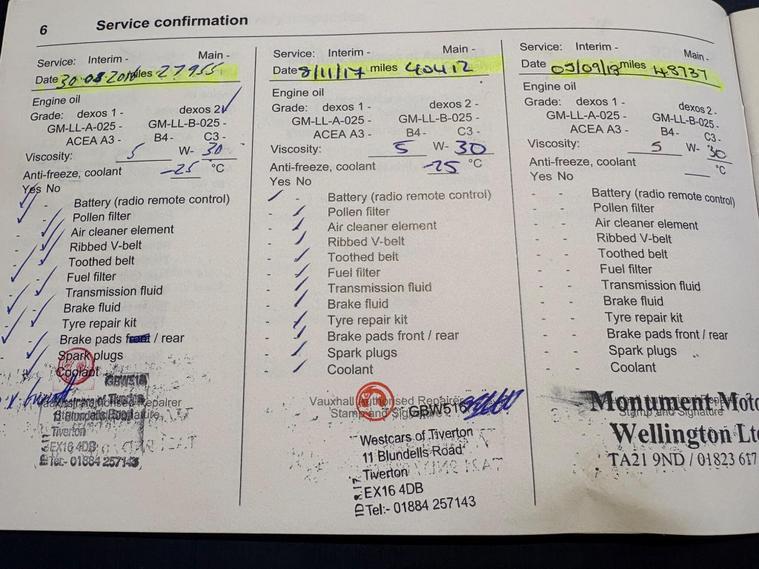 6 Service confirmation
Service: Interim - Main -
Date 30 08 miles 27955
Engine oil
Grade: dexos 1 - dexos 2
GM-LL-A-025 - GM-LL-B-025 -
ACEA A3 - B4 - C3 -
Viscosity: 5 W- 30
Anti-freeze, coolant -25 °C
Yes No
- Battery (radio remote control)
- Pollen filter
Air cleaner element
Ribbed V-belt
Toothed belt
Fuel filter
Transmission fluid
Brake fluid
Tyre repair kit
Brake pads front / rear
Spark plugs
Coolant
GBW516
Westcars of Tiverton
11 Blundells Road
Tiverton
EX16 4DB
Tel:- 01884 257143
Service: Interim - Main -
Date 8/11/17 miles 40412
Engine oil
Grade: dexos 1 - dexos 2 -
GM-LL-A-025 - GM-LL-B-025 -
ACEA A3 - B4 - C3 -
Viscosity: 5 W- 30
Anti-freeze, coolant -25 °C
Yes No
- Battery (radio remote control)
- Pollen filter
- Air cleaner element
- Ribbed V-belt
- Toothed belt
- Fuel filter
- Transmission fluid
- Brake fluid
- Tyre repair kit
- Brake pads front / rear
- Spark plugs
- Coolant
Vauxhall Authorised Repairer
Stamp and Signature
GBW516
Westcars of Tiverton
11 Blundells Road
Tiverton
EX16 4DB
Tel:- 01884 257143
Service: Interim - Main -
Date 05/09/18 miles 48737
Engine oil
Grade: dexos 1 - dexos 2 -
GM-LL-A-025 - GM-LL-B-025 -
ACEA A3 - B4 - C3 -
Viscosity: 5 W- 30
Anti-freeze, coolant °C
Yes No
- - Battery (radio remote control)
- - Pollen filter
- - Air cleaner element
- - Ribbed V-belt
- - Toothed belt
- - Fuel filter
- - Transmission fluid
- - Brake fluid
- - Tyre repair kit
- - Brake pads front / rear
- - Spark plugs
- - Coolant
Stamp and Signature
Monument Moto
Wellington Lt
TA21 9ND / 01823 617